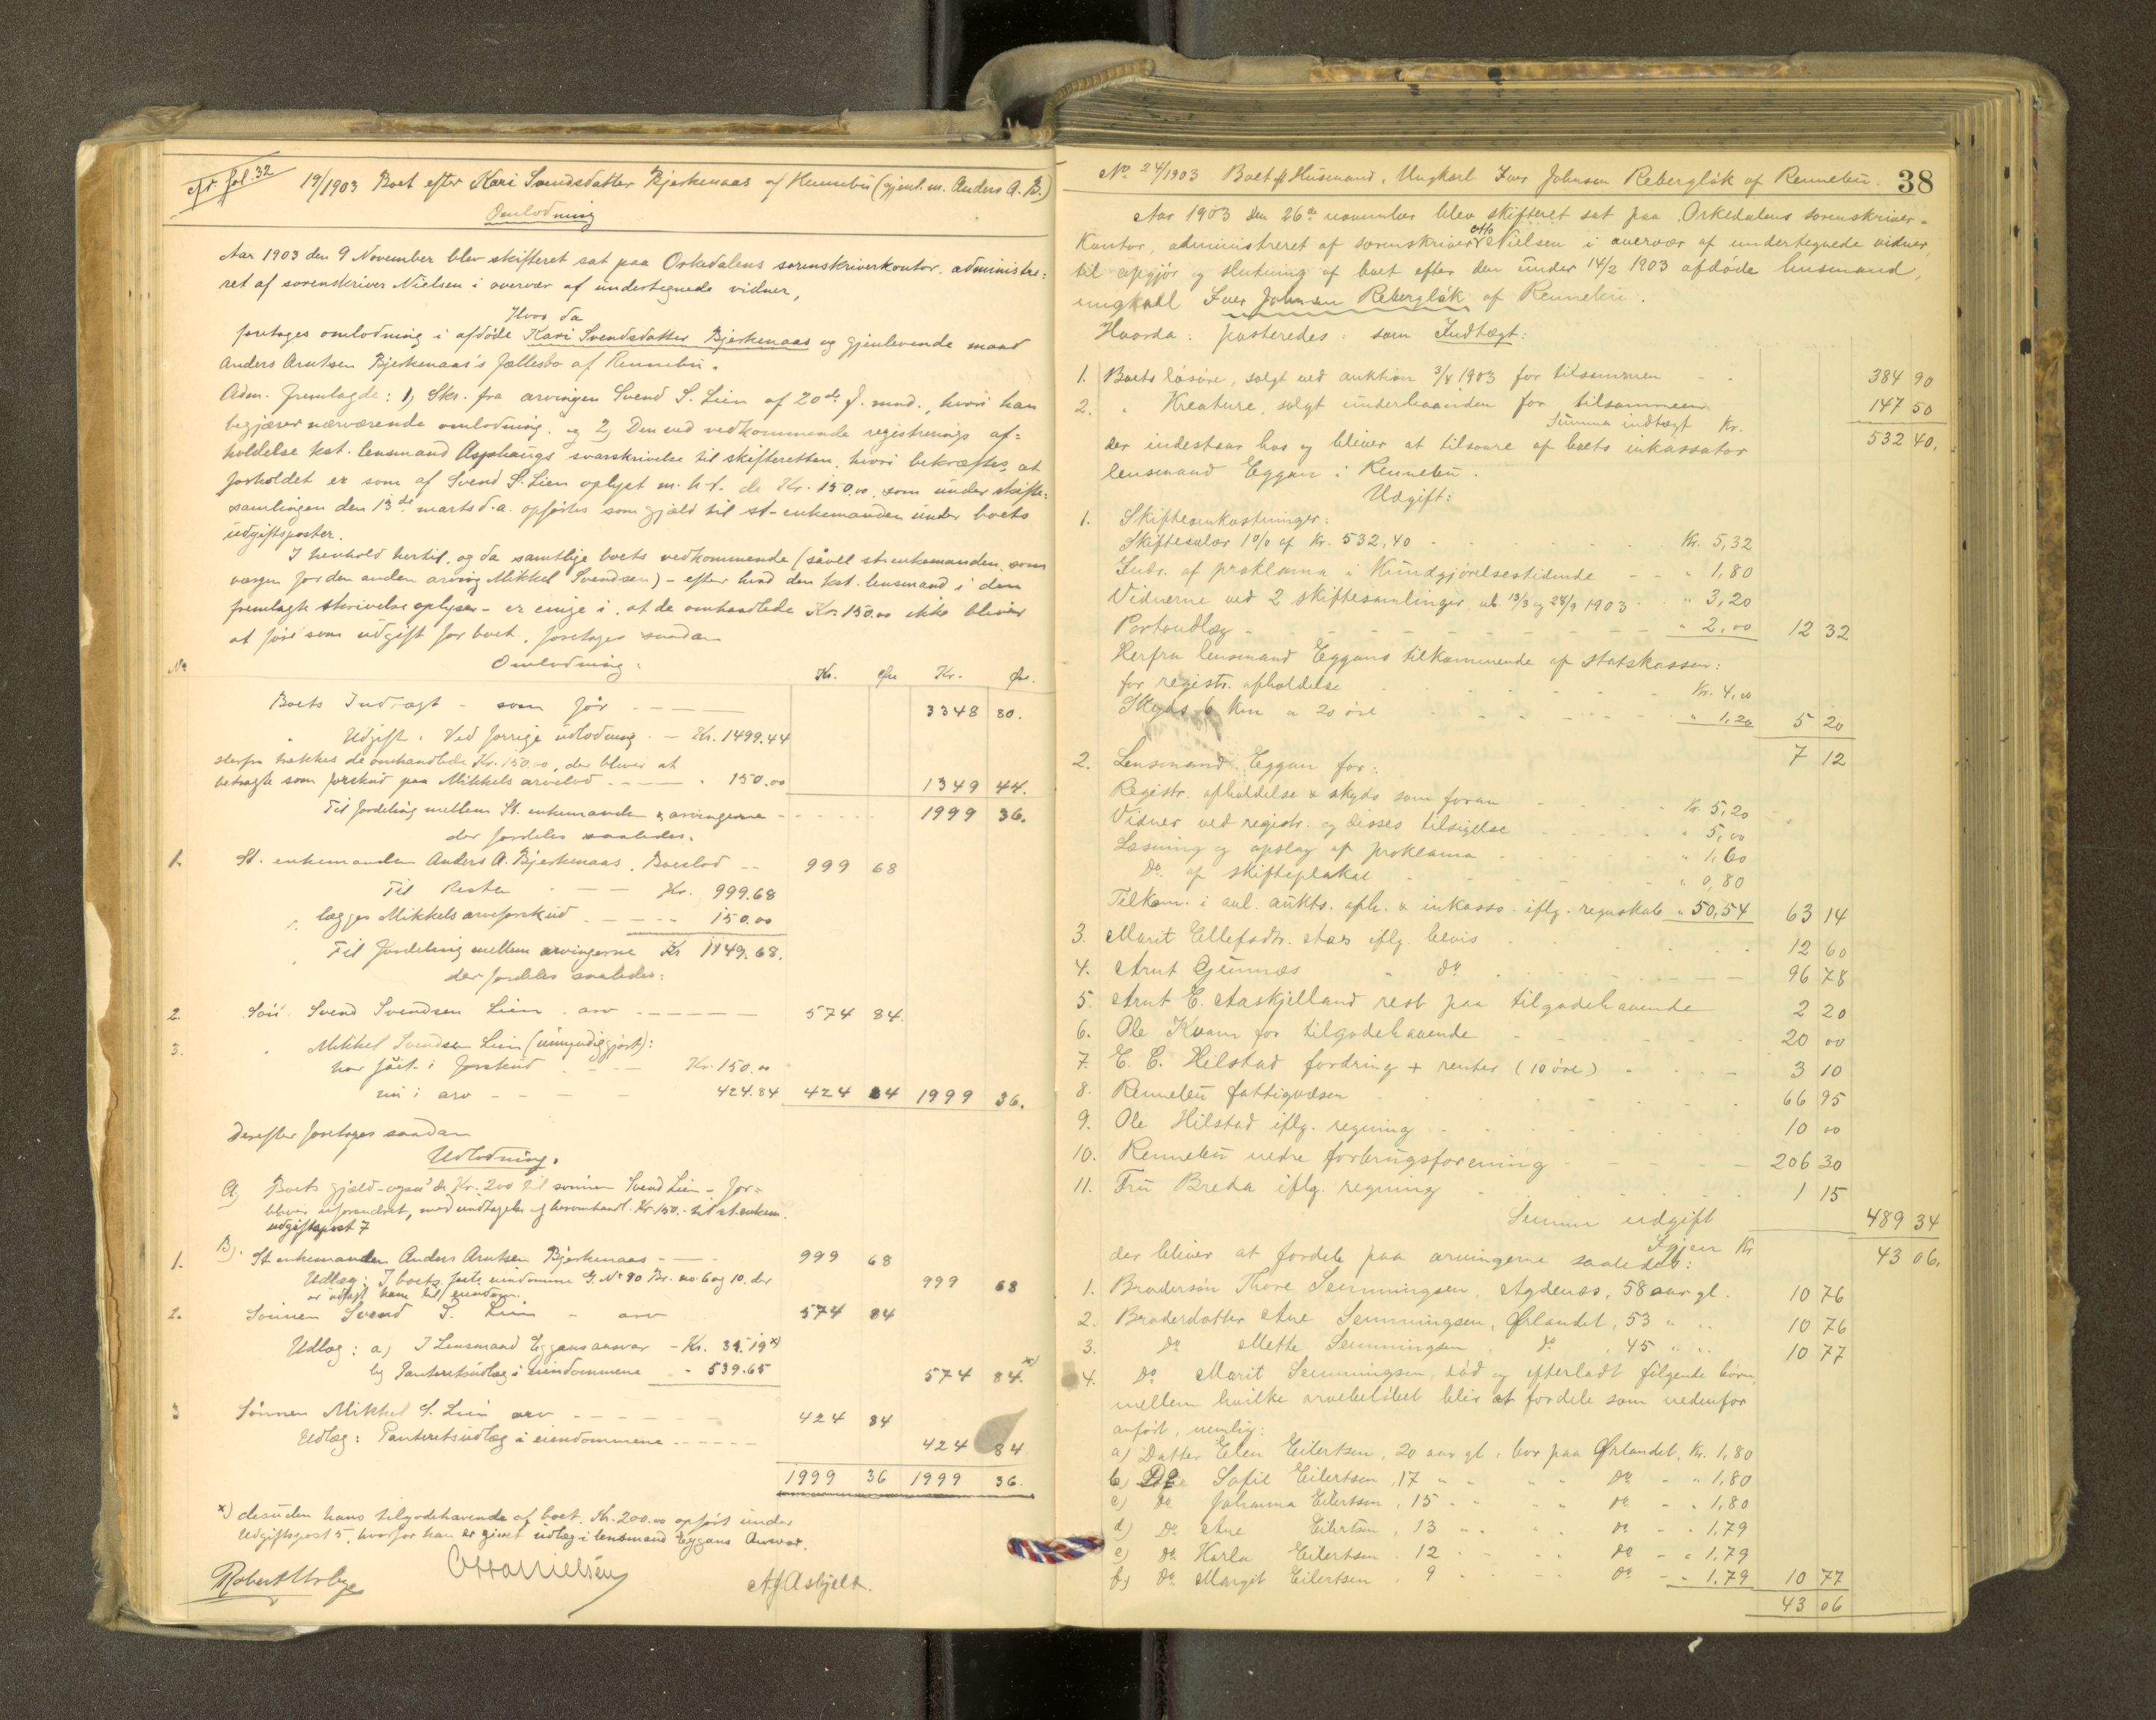 cfr. fol. 32
19/1903 Boet efter Kari Svendsdatter Bjerkenaas af Rennebu (gjenl. m. Anders A. B.)
Omlodning
Aar 1903 den 9 November blev skifteret sat paa Orkedalens sorenskriverkontor, administre=
ret af sorenskriver Nielsen i overvær af undertegnede vidner,
Hvor da
foretages omlodning i afdöde Kari Svendsdatter Bjerkenaas og gjenlevende mand
Anders Arntsen Bjerkenaas's fællesbo af Rennebu.
Adm. fremlagde: 1) Skr. fra arvingen Svend S. Lien af 20de f. mnd., hvori han
begjærer nærværende omlodning, og 2) Den ved vedkommende registrerings af=
holdelse kst. lensmand Asphaugs svarskrivelse til skifteretten, hvori bekræftes, at
forholdet er som af Svend S. Lien oplyst m. h. t. de Kr. 150.00, som under skifte=
samlingen den 13de marts d. a. opförtes som gjæld til st-enkemanden under boets
udgiftsposter.
I henhold hertil, og da samtlige boets vedkommende (såvel st-enkemanden som
værgen for den anden arving Mikkel Svendsen) - efter hvad den kst. lensmand i den
fremlagte skrivelse oplyser - er enige i, at de omhandlede Kr. 150.00 ikke bliver
at före som udgift for boet, foretages saadan
Omlodning:
No Kr. Øre Kr. Øre.
Boets Indtægt - som för - 3348 80.
" Udgift. Ved forrige udlodning - Kr. 1499.44
Herfra trækkes de omhandlede Kr. 150.00, der bliver at
betragte som forskud paa Mikkels arvelod - " 150.00 1349 44.
Til fordeling mellem St. enkemanden & arvingerne - 1999 36.
der fordeles saaledes:
1. St. enkemanden Anders A. Bjerkenaas. Boeslod - 999 68
Til Resten - Kr. 999.68
lægges Mikkels arveforskud - " 150.00
Til fordeling mellem arvingerne Kr 1149.68.
der fordeles saaledes:
2. Sön Svend Svendsen Lien. arv - 574 84.
3. " Mikkel Svendsen Lien (umyndiggjort):
har fået i forskud - Kr. 150.00
nu i arv - 424.84 424 84 1999 36.
Derefter foretages saadan
Udlodning.
A) Boets gjæld - også de Kr. 200 til sönnen Svend Lien - for=
bliver uforandret, med undtagelse af heromhandl. Kr. 150.- til st. enkem.
udgiftspost 7
B).
1. St enkemanden Anders Arntsen Bjerkenaas - 999 68
Udlæg: I boets faste eiendomme G. No 90 Br. no. 6 og 10. der
er udlagt ham til eiendom. 999 68
2. Sönnen Svend S. Lien - arv 574 84
Udlæg: a) I Lensmand Eggans ansvar - Kr. 35.19 x)
b) Panteretsudlæg i eiendommene - 539.65 574 84. x)
3 Sönnen Mikkel S. Lien arv - 424 84
Udlæg: Panteretsudlæg i eiendommene - 424 84
1999 36 1999 36.
x) desuden hans tilgodehavende af boet. Kr. 200.00 opfört under
Udgiftspost 5, hvorfor han er givet udlæg i lensmand Eggans Ansvar.
Otto Nielsen
No. 24/1903 Boet eft Husmand, Ungkarl Iver Johnsen Rebergløk af Rennebu. 38
Aar 1903 den 26de november blev skifteret sat paa Orkedalens sorenskriver-
kontor, administreret af sorenskriver Otto Nielsen i overvær af undertegnede vidner,
til opgjör og slutning af boet efter den under 14/2 1903 afdöde husmand,
ungkarl Iver Johnsen Rebergløk af Rennebu.
Hvorda: posteredes: som Indtægt:
1. Boets lösöre, solgt ved auktion 3/4 1903 for tilsammen - 384 90
2. " Kreature, solgt underhaanden for tilsammen 147 50
Summa indtægt Kr. 532 40.
der indestaar hos og bliver at tilsvare af boets inkassator
lensmand Eggan i Rennebu.
Udgift:
1. Skifteomkostninger:
Skiftesalær 1% af Kr. 532,40 - Kr. 5,32
Indr. af proklama i Kundgjörelsestidende - " 1,80
Vidnerne ved 2 skiftesamlinger, nl. 13/3 og 28/9 1903 - " 3,20
Portoudlæg - " 2,00 12 32
Herfra lensmand Eggans tilkommende af statskassen:
for registr. afholdelse - Kr. 4,00
Skyds 6 km a 20 öre - " 1,20 5 20
7 12
2. Lensmand Eggan for:
Registr. afholdelse & skyds som foran - Kr. 5,20
Vidner ved registr. og disses tilsigelse - " 5,00
Læsning og opslag af proklama - " 1,60
Do. af skifteplakat - " 0,80
Tilkom. i anl. aukts. afh. & inkasso iflg. regnskab " 50,54 63 14
3. Marit Ellefsdtr. Stas iflg. bevis - 12 60
4. Arnt Gunnæs " do - 96 78
5. Arnt E. Aaskjelland rest paa tilgodehavende 2 20
6. Ole Kvam for tilgodehavende - 20 00
7. E. E. Hilstad fordring + renter (10 öre) - 3 10
8. Rennebu fattigvæsen - 66 95
9. Ole Hilstad iflg. regning - 10 00
10. Rennebu nedre forbrugsforening - 206 30
11. Fru Breda iflg. regning - 1 15
Summa udgift 489 34
Igjen Kr 43 06.
der bliver at fordele paa arvingerne saaledes:
1. Brodersön Thore Semmingsen, Agdenes, 58 aar gl. 10 76
2. Broderdatter Ane Semmingsen, Ørlandet, 53 " " 10 76
3. Do Mette Semmingsen, do, 45 " " 10 77
4. Do Marit Semmingsen, död og efterladt fölgende börn,
mellem hvilke arvebelöbet blir at fordele som nedenfor
anfört, nemlig:
a) Datter Elen Eilertsen, 20 aar gl, bor paa Ørlandet, Kr. 1,80
b) Do Sofie Eilertsen, 17 " " " do - " 1,80
c) do Johanna Eilertsen, 15 " " " do - " 1,80
d) Do Ane Eilertsen, 13 " " " do - " 1,79
e) do Karla Eilertsen, 12 " " " do - " 1,79
f) do Margit Eilertsen, 9 " " " do - " 1,79 10 77
43 06